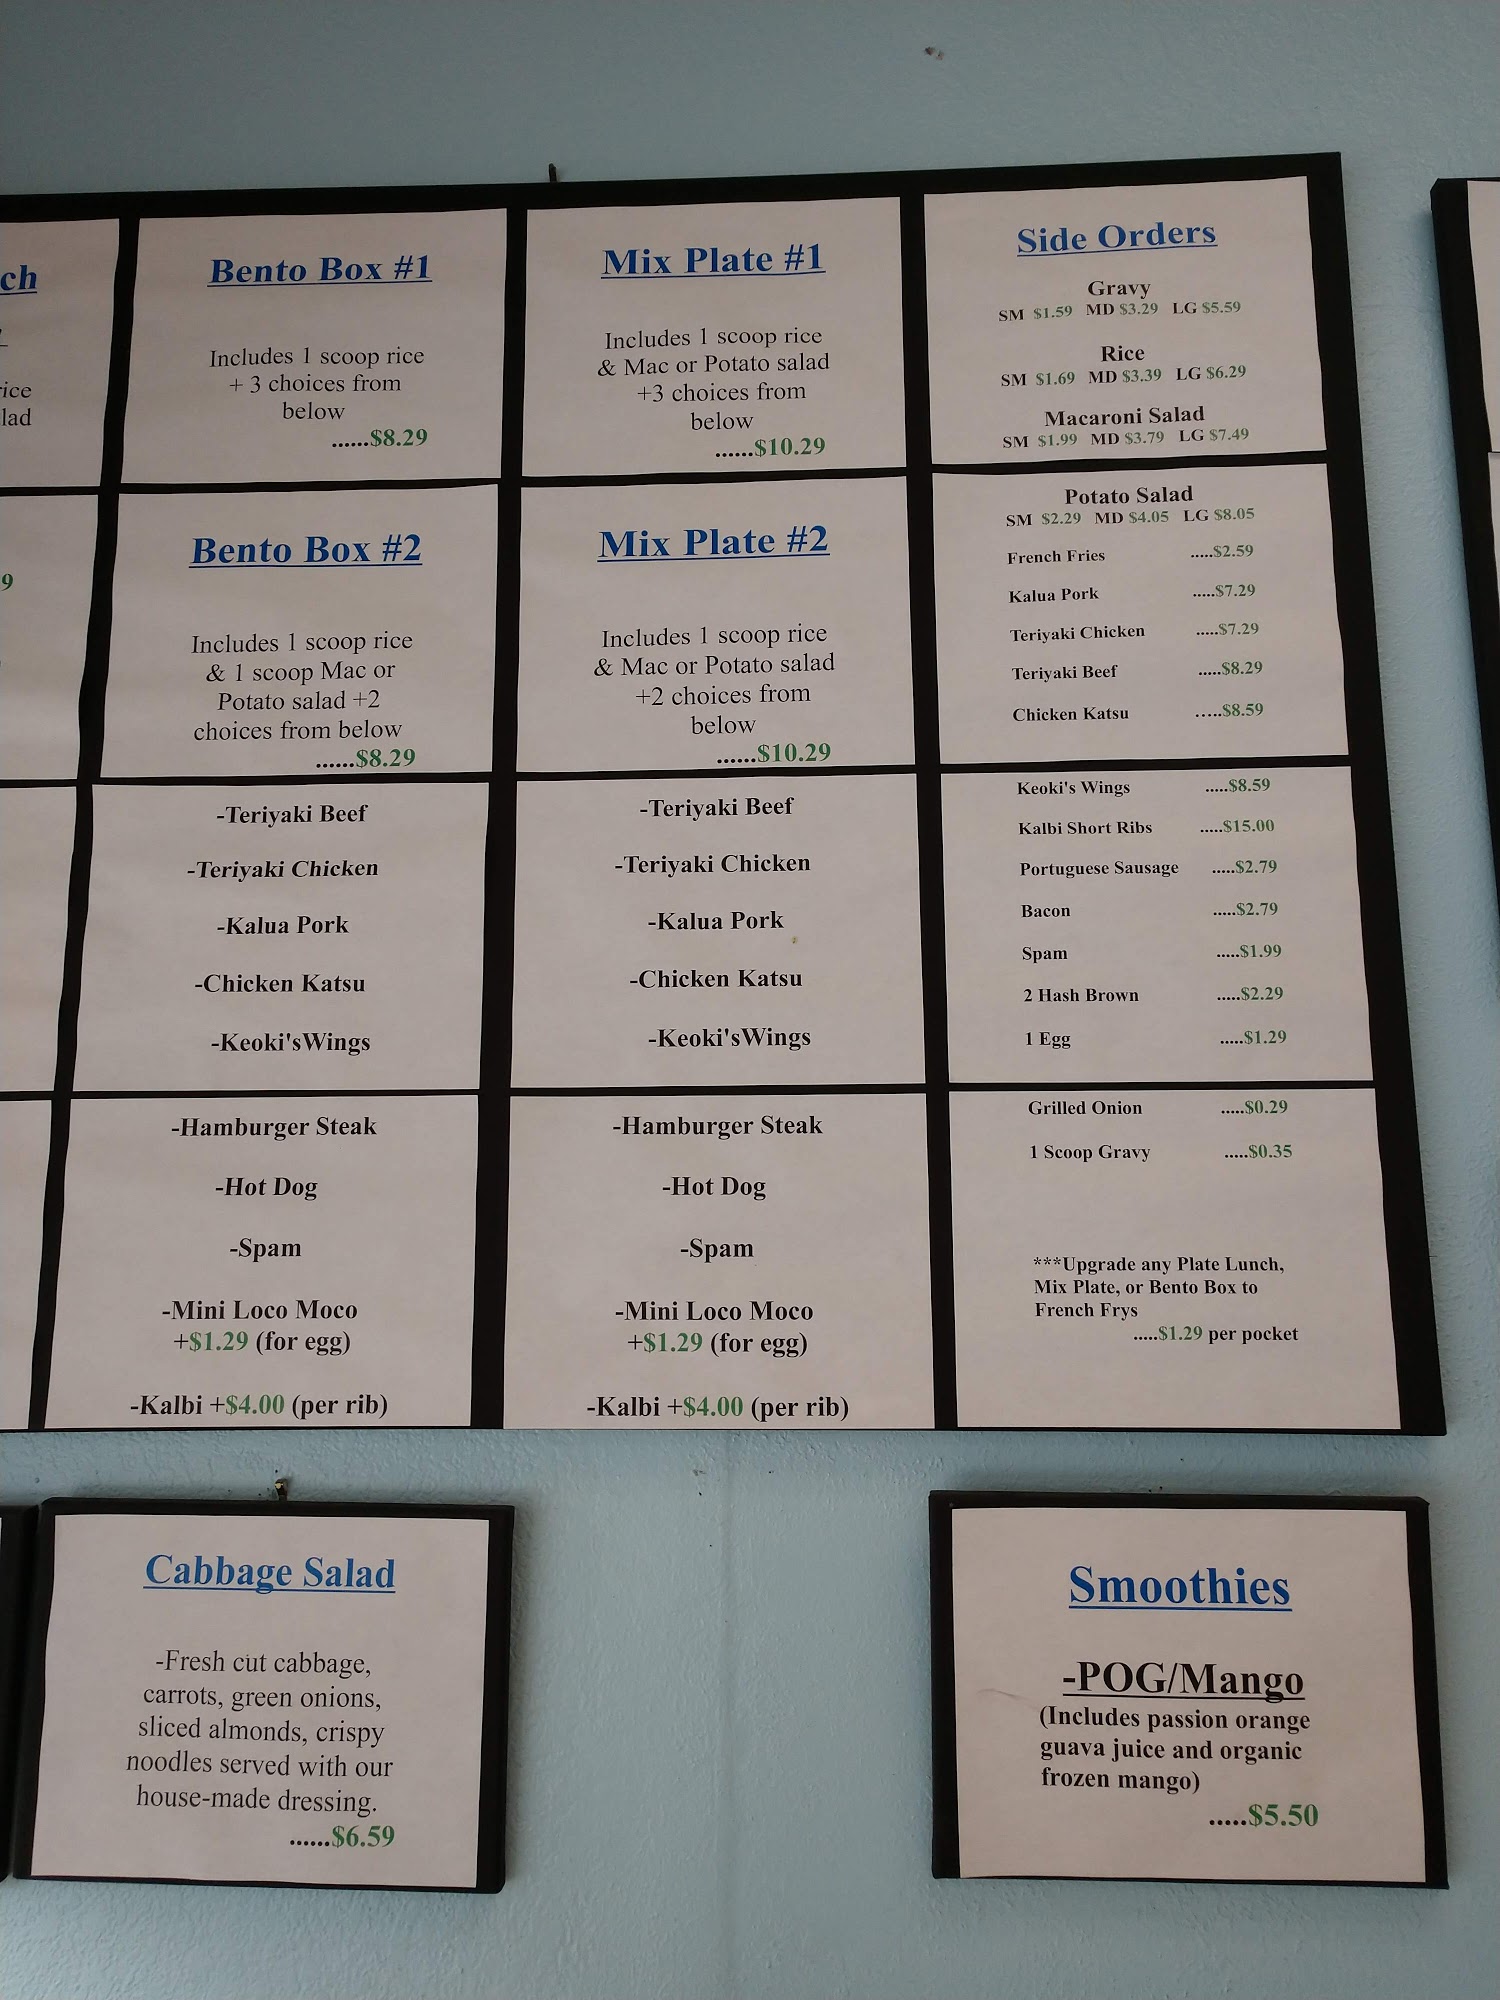 ch
rice
lad
9
Bento Box #1
Includes 1 scoop rice
+ 3 choices from
below
......$8.29
Bento Box #2
Includes 1 scoop rice
& 1 scoop Mac or
Potato salad +2
choices from below
......$8.29
-Teriyaki Beef
-Teriyaki Chicken
-Kalua Pork
-Chicken Katsu
-Keoki'sWings
-Hamburger Steak
-Hot Dog
-Spam
-Mini Loco Moco
+$1.29 (for egg)
-Kalbi +$4.00 (per rib)
Mix Plate #1
Includes 1 scoop rice
& Mac or Potato salad
+3 choices from
below
......$10.29
Mix Plate #2
Includes 1 scoop rice
& Mac or Potato salad
+2 choices from
below
......$10.29
-Teriyaki Beef
-Teriyaki Chicken
-Kalua Pork
-Chicken Katsu
-Keoki'sWings
-Hamburger Steak
-Hot Dog
-Spam
-Mini Loco Moco
+$1.29 (for egg)
-Kalbi +$4.00 (per rib)
Side Orders
Gravy
SM $1.59 MD $3.29 LG $5.59
Rice
SM $1.69 MD $3.39 LG $6.29
Macaroni Salad
SM $1.99 MD $3.79 LG $7.49
Potato Salad
SM $2.29 MD $4.05 LG $8.05
French Fries .....$2.59
Kalua Pork .....$7.29
Teriyaki Chicken .....$7.29
Teriyaki Beef .....$8.29
Chicken Katsu .....$8.59
Keoki's Wings .....$8.59
Kalbi Short Ribs .....$15.00
Portuguese Sausage .....$2.79
Bacon .....$2.79
Spam .....$1.99
2 Hash Brown .....$2.29
1 Egg .....$1.29
Grilled Onion .....$0.29
1 Scoop Gravy .....$0.35
***Upgrade any Plate Lunch,
Mix Plate, or Bento Box to
French Frys
.....$1.29 per pocket
Cabbage Salad
-Fresh cut cabbage,
carrots, green onions,
sliced almonds, crispy
noodles served with our
house-made dressing.
......$6.59
Smoothies
-POG/Mango
(Includes passion orange
guava juice and organic
frozen mango)
.....$5.50